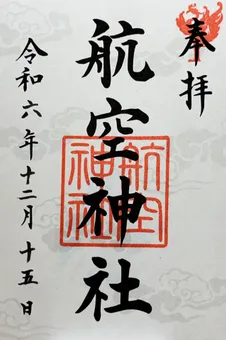 奉拝
航空神社
航空神社
令和六年十二月十五日